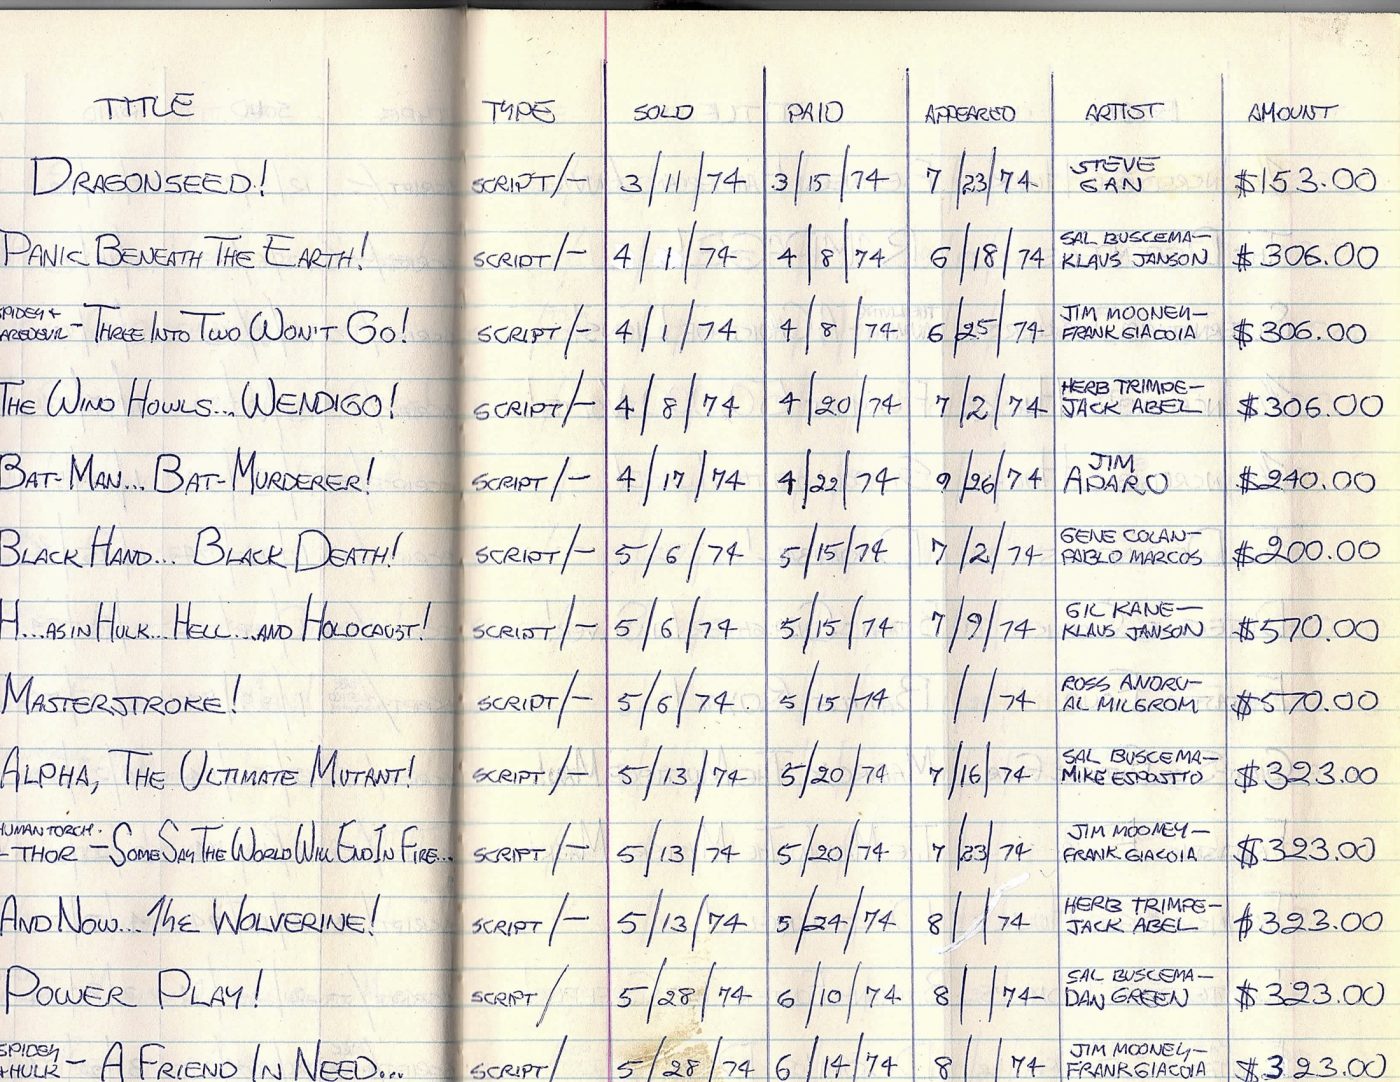 TITLE TYPE SOLD PAID APPEARED ARTIST AMOUNT
DRAGONSEED! SCRIPT/— 3/11/74 3/15/74 7/23/74 STEVE GAN $153.00
PANIC BENEATH THE EARTH! SCRIPT/— 4/1/74 4/8/74 6/18/74 SAL BUSCEMA— KLAUS JANSON $306.00
SPIDEY + AREDEVIL — THREE INTO TWO WON'T GO! SCRIPT/— 4/1/74 4/8/74 6/25/74 JIM MOONEY— FRANK GIACOIA $306.00
THE WIND HOWLS... WENDIGO! SCRIPT/— 4/8/74 4/20/74 7/2/74 HERB TRIMPE— JACK ABEL $306.00
BAT-MAN... BAT-MURDERER! SCRIPT/— 4/17/74 4/22/74 9/26/74 JIM APARO $240.00
BLACK HAND... BLACK DEATH! SCRIPT/— 5/6/74 5/15/74 7/2/74 GENE COLAN— PABLO MARCOS $200.00
H...AS IN HULK... HELL...AND HOLOCAUST! SCRIPT/— 5/6/74 5/15/74 7/9/74 GIL KANE— KLAUS JANSON $570.00
MASTERSTROKE! SCRIPT/— 5/6/74 5/15/74 / /74 ROSS ANDRU— AL MILGROM $570.00
ALPHA, THE ULTIMATE MUTANT! SCRIPT/— 5/13/74 5/20/74 7/16/74 SAL BUSCEMA— MIKE ESPOSITO $323.00
HUMAN TORCH - — THOR — SOME SAY THE WORLD WILL END IN FIRE... SCRIPT/— 5/13/74 5/20/74 7/23/74 JIM MOONEY— FRANK GIACOIA $323.00
AND NOW... THE WOLVERINE! SCRIPT/— 5/13/74 5/24/74 8/ /74 HERB TRIMPE— JACK ABEL $323.00
POWER PLAY! SCRIPT/ 5/28/74 6/10/74 8/ /74 SAL BUSCEMA— DAN GREEN $323.00
SPIDEY + HULK — A FRIEND IN NEED... SCRIPT/ 5/28/74 6/14/74 8/ 74 JIM MOONEY— FRANK GIACOIA $323.00